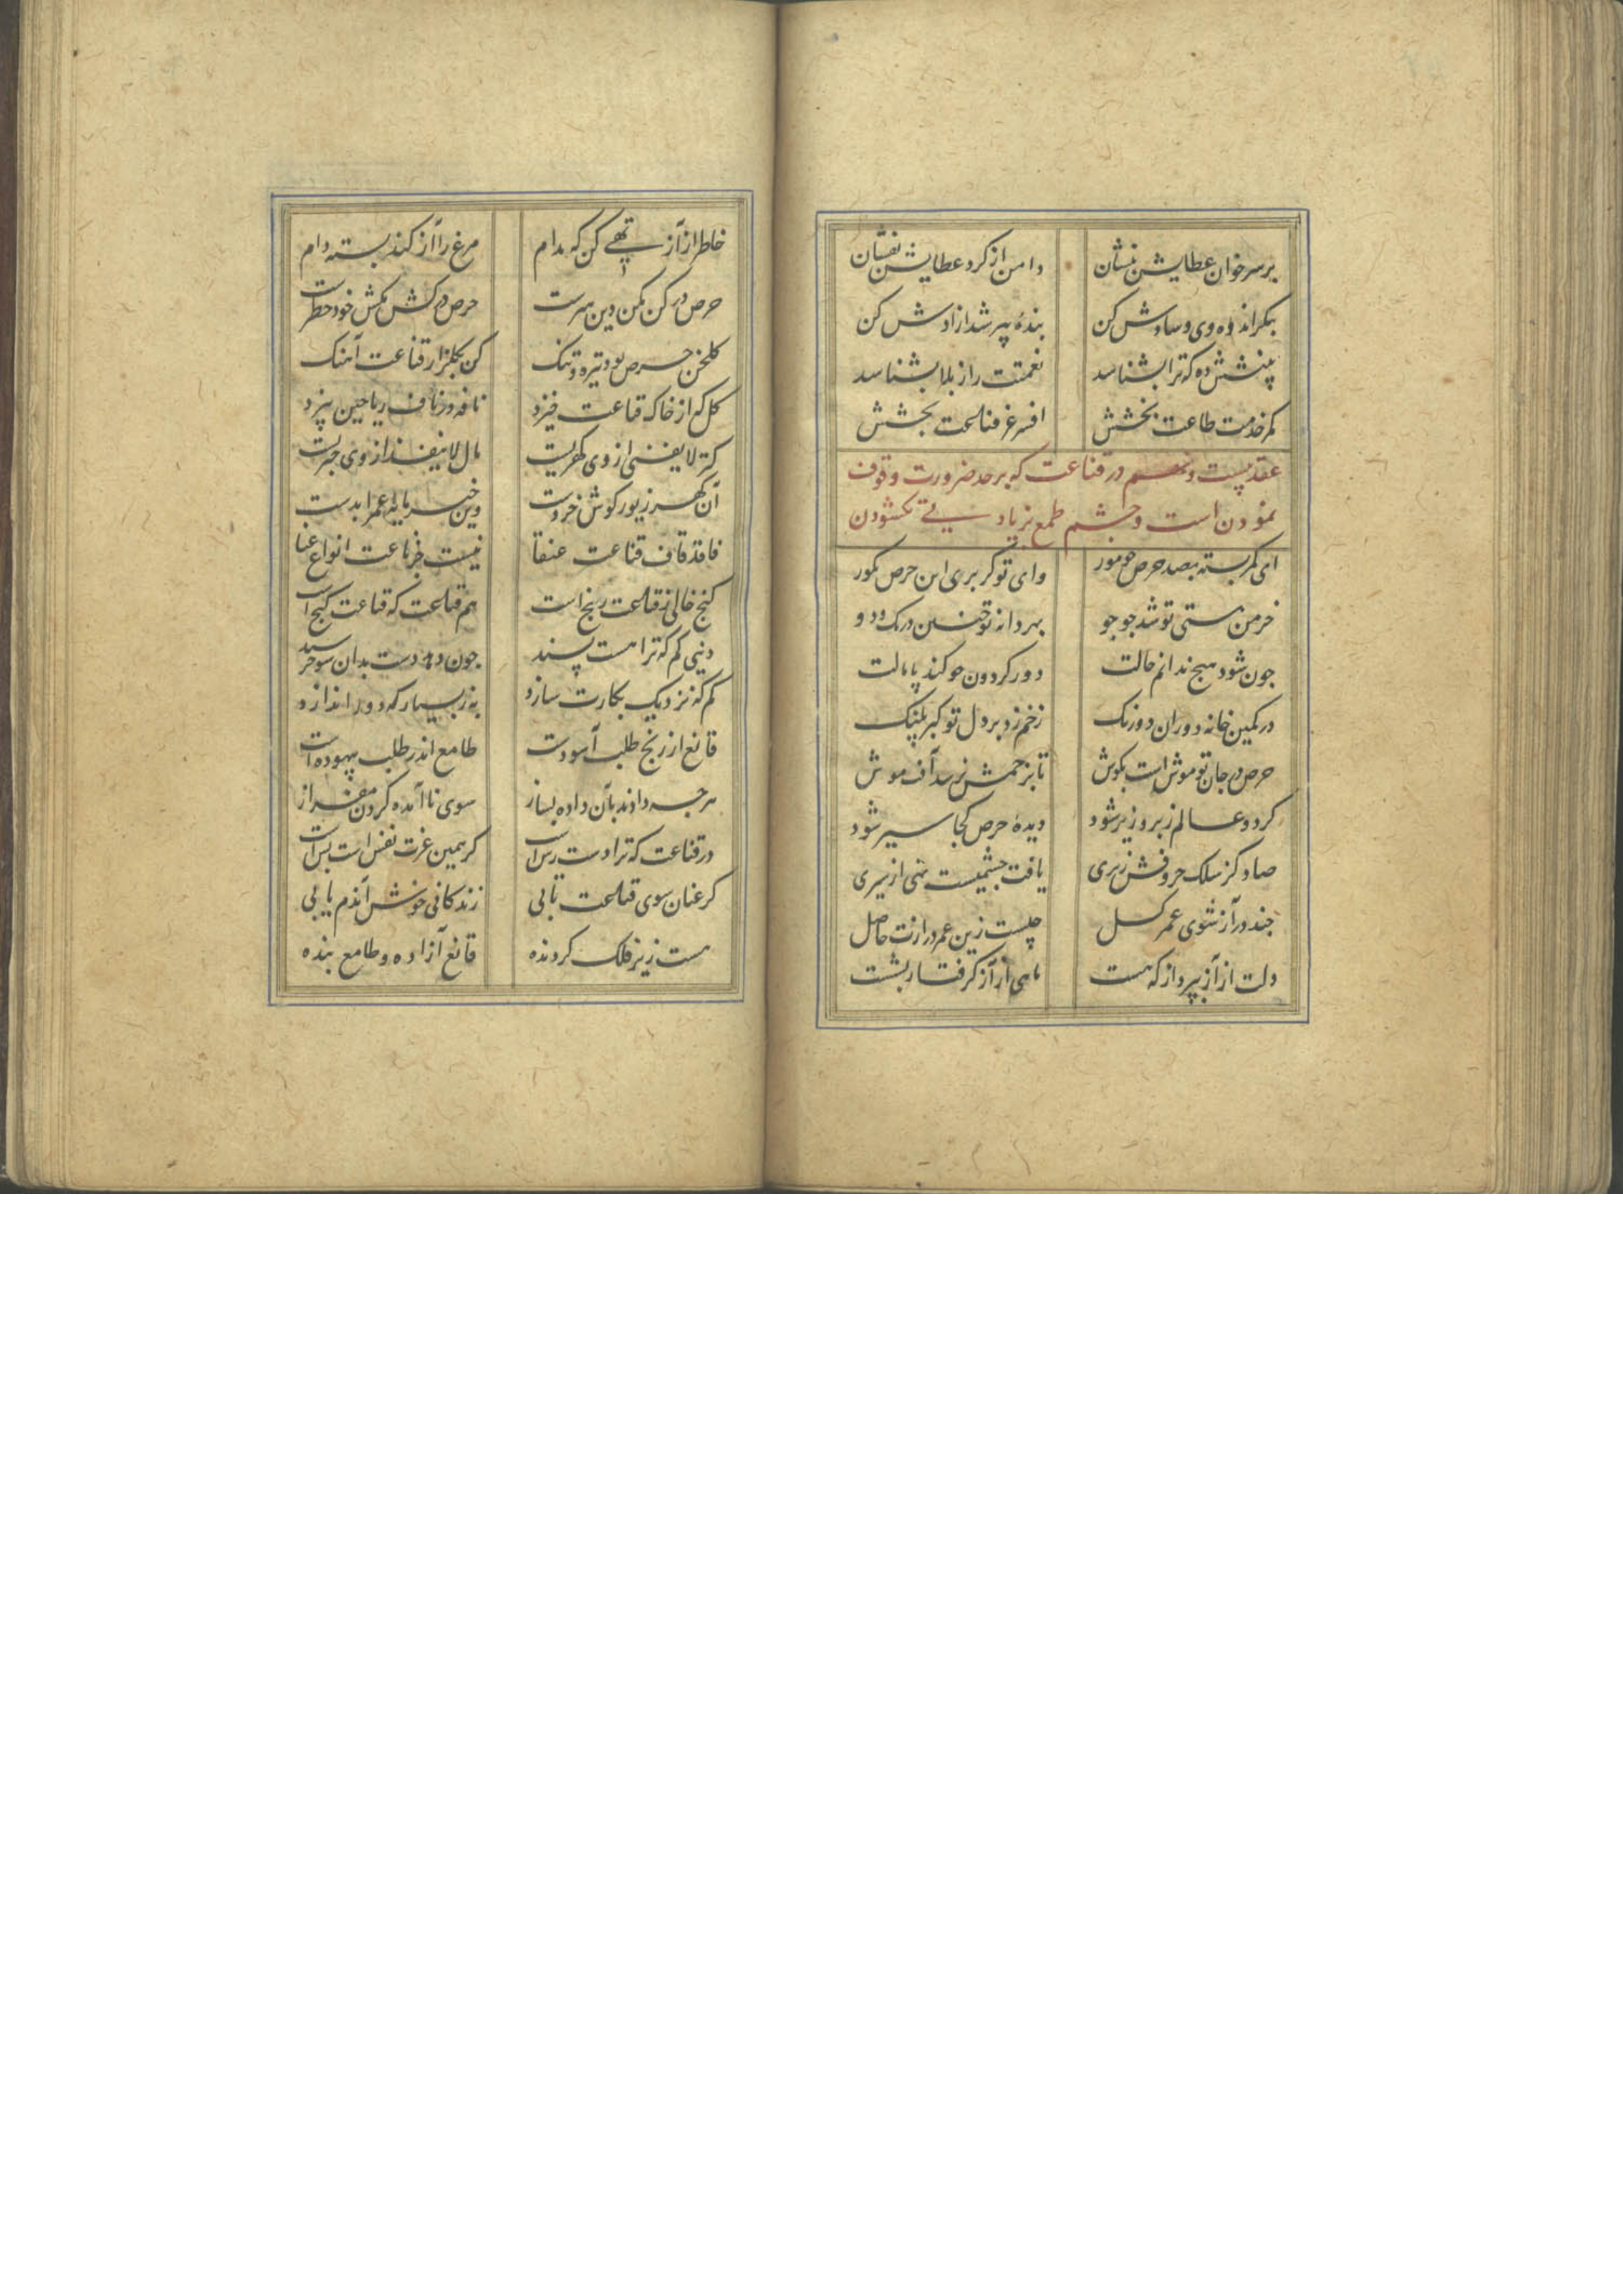 برسر خوان عطایش بنشان دامن از کرد عطایش بفشان
بکر اندوه وی و شادش کن بندهٔ پیر شد ازادش کن
بینشش ده که ترا بشناسد نعمتت را ز بلا بشناسد
کمر خدمت طاعت بخشش افسر عز قناعت بخشش
عقد بیست و نهم در قناعت که بر حد ضرورت وقوف
نمودن است و چشم طمع بزیادیی نکشودن
ای کمر بسته بصد حرص چو مور وای تو کر بری این حرص بکور
خرمن هستی تو شد جو جو بهر دانه تو چنین در تک و دو
چون شود هیچ ندانم حالت دور کردون چو کند پامالت
در کمین خانه دوران دورنک زخم زد بر دل تو کبر پلنک
حرص در جان تو موش است بکوش تا بزخمش نرسد آفت موش
کر دو عالم زبر و زیر شود دیدهٔ حرص کجا سیر شود
صاد کز سلک حروفش زبری یافت چشمیست تهی از سیری
چند در آز شوی عمر کسل چیست زین عمر درازت حاصل
دلت از آز بپرداز که هست ماهی از آز کرفتار بشست
خاطر از آز تهی کن که مدام مرغ را آز کند بسته دام
حرص در کن مکن دین سرست حرص در کش مکش خود خطرست
کلخن حرص بود تیره و تنک کن بکلزار قناعت آهنک
کل که از خاک قناعت خیزد نافه در ناف ریاحین بیزد
کنز لا یفنی از وی کهریست مال لا ینفد از وی خبریست
آن کهر زیور کوش خردست وین خبر مایه عمر ابدست
قاف تا قاف قناعت عنقا نیست جز قناعت انواع غنا
کنج خالی ز قناعت رنج است هم قناعت که قناعت کنج است
دنیی کم که ترا هست پسند چون دهد دست بدان شو خرسند
کم که نزدیک بکارت سازد به ز بسیار که دور اندازد
قانع از رنج طلب آسودست طامع اندر طلب بیهوده است
هر چه دادند بآن داده بساز سوی ناآمده کردن مفراز
در قناعت که ترا دست رس است کر همین عزت نفس است بس است
کر عنان سوی قناعت تابی زندکانی خوش آندم یابی
هست زیر فلک کردنده قانع آزاده و طامع بنده